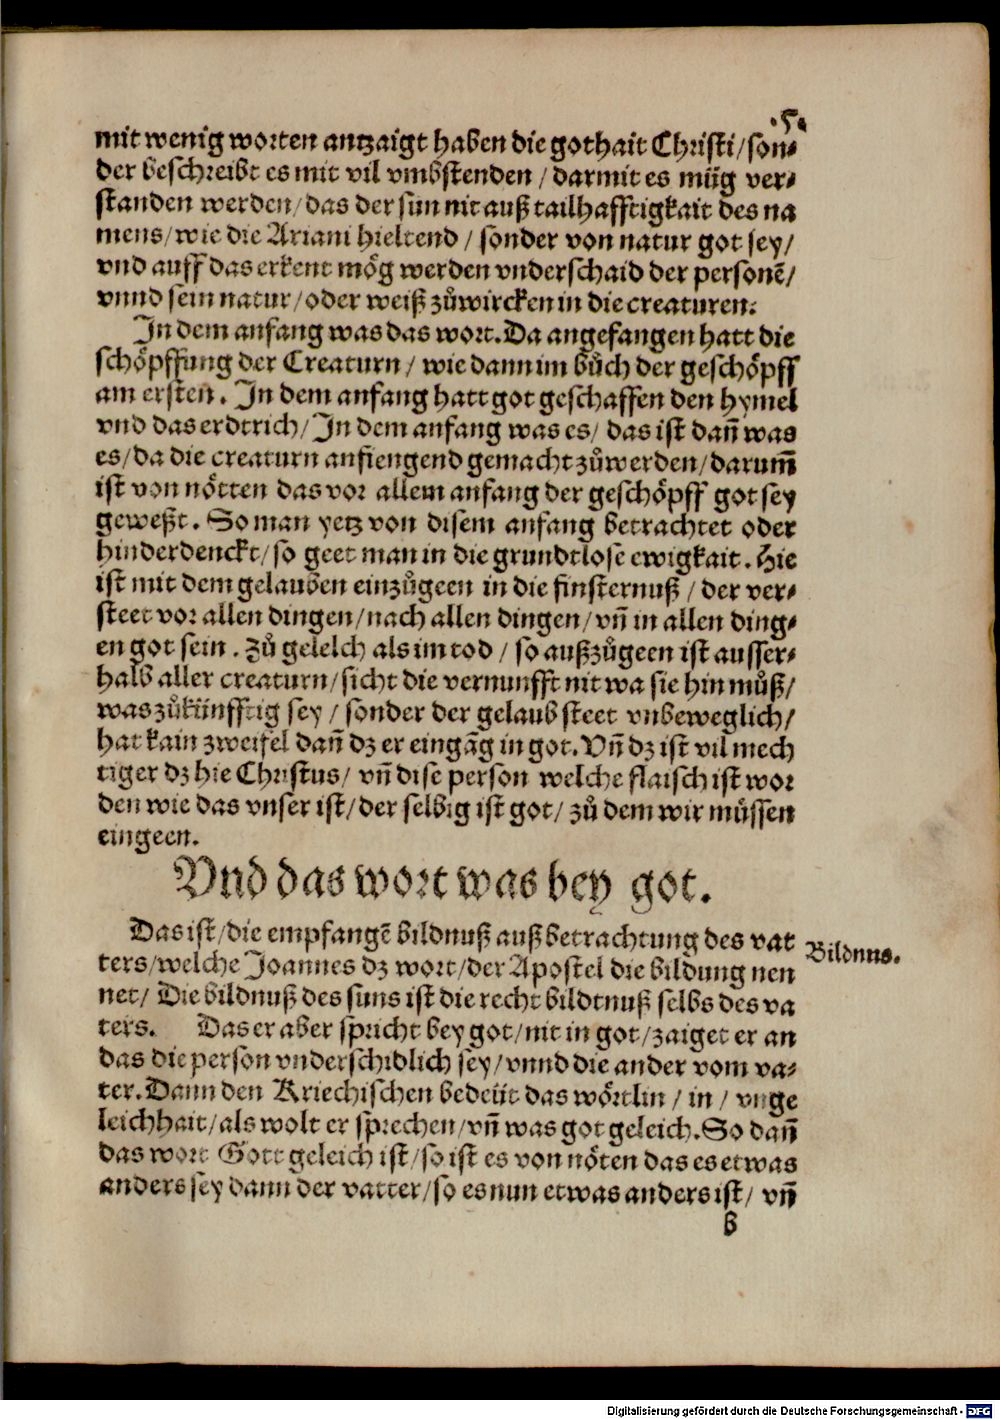 .5.
mit wenig worten antzaigt haben die gothait Christi/son-
der beschreibt es mit vil vmbstenden / darmit es müg ver-
standen werden/das der sun nit auß tailhafftigkait des na
mens/wie die Ariani hieltend / sonder von natur got sey/
vnd auff das erkent mög werden vnderschaid der personẽ/
vnnd sein natur/oder weiß zůwircken in die creaturen.
In dem anfang was das wort. Da angefangen hatt die
schöpffung der Creaturn / wie dann im bůch der geschöpff
am ersten. In dem anfang hatt got geschaffen den hymel
vnd das erdtrich/In dem anfang was es/ das ist dañ was
es/da die creaturn anfiengend gemacht zůwerden/darum̃
ist von nötten das vor allem anfang der geschöpff got sey
geweßt. So man yetz von disem anfang betrachtet oder
hinderdenckt/so geet man in die grundtlose ewigkait. Hie
ist mit dem gelauben einzůgeen in die finsternuß / der ver-
steet vor allen dingen/nach allen dingen/vñ in allen ding-
en got sein. Zů geleich als im tod / so außzůgeen ist ausser-
halb aller creaturn/sicht die vernunfft nit wa sie hin můß/
was zůkünfftig sey / sonder der gelaub steet vnbeweglich/
hat kain zweifel dañ dz er eingãg in got. Vñ dz ist vil mech
tiger dz hie Christus/ vñ dise person welche flaisch ist wor
den wie das vnser ist/der selbig ist got/ zů dem wir müssen
eingeen.
Vnd das wort was bey got.
Das ist/die empfangẽ bildnuß auß betrachtung des vat
ters/welche Joannes dz wort/der Apostel die bildung nen
net/ Die bildnuß des suns ist die recht bildtnuß selbs des va
ters. Das er aber spricht bey got/nit in got/zaiget er an
das die person vnderschidlich sey/vnnd die ander vom va-
ter. Dann den Kriechischen bedeüt das wörtlin / in / vnge
leichhait/als wolt er sprechen/vñ was got geleich. So dañ
das wort Gott geleich ist/so ist es von nöten das es etwas
anders sey dann der vatter/so es nun etwas anders ist/ vñ
b
Bildnus.
Digitalisierung gefördert durch die Deutsche Forschungsgemeinschaft - DFG